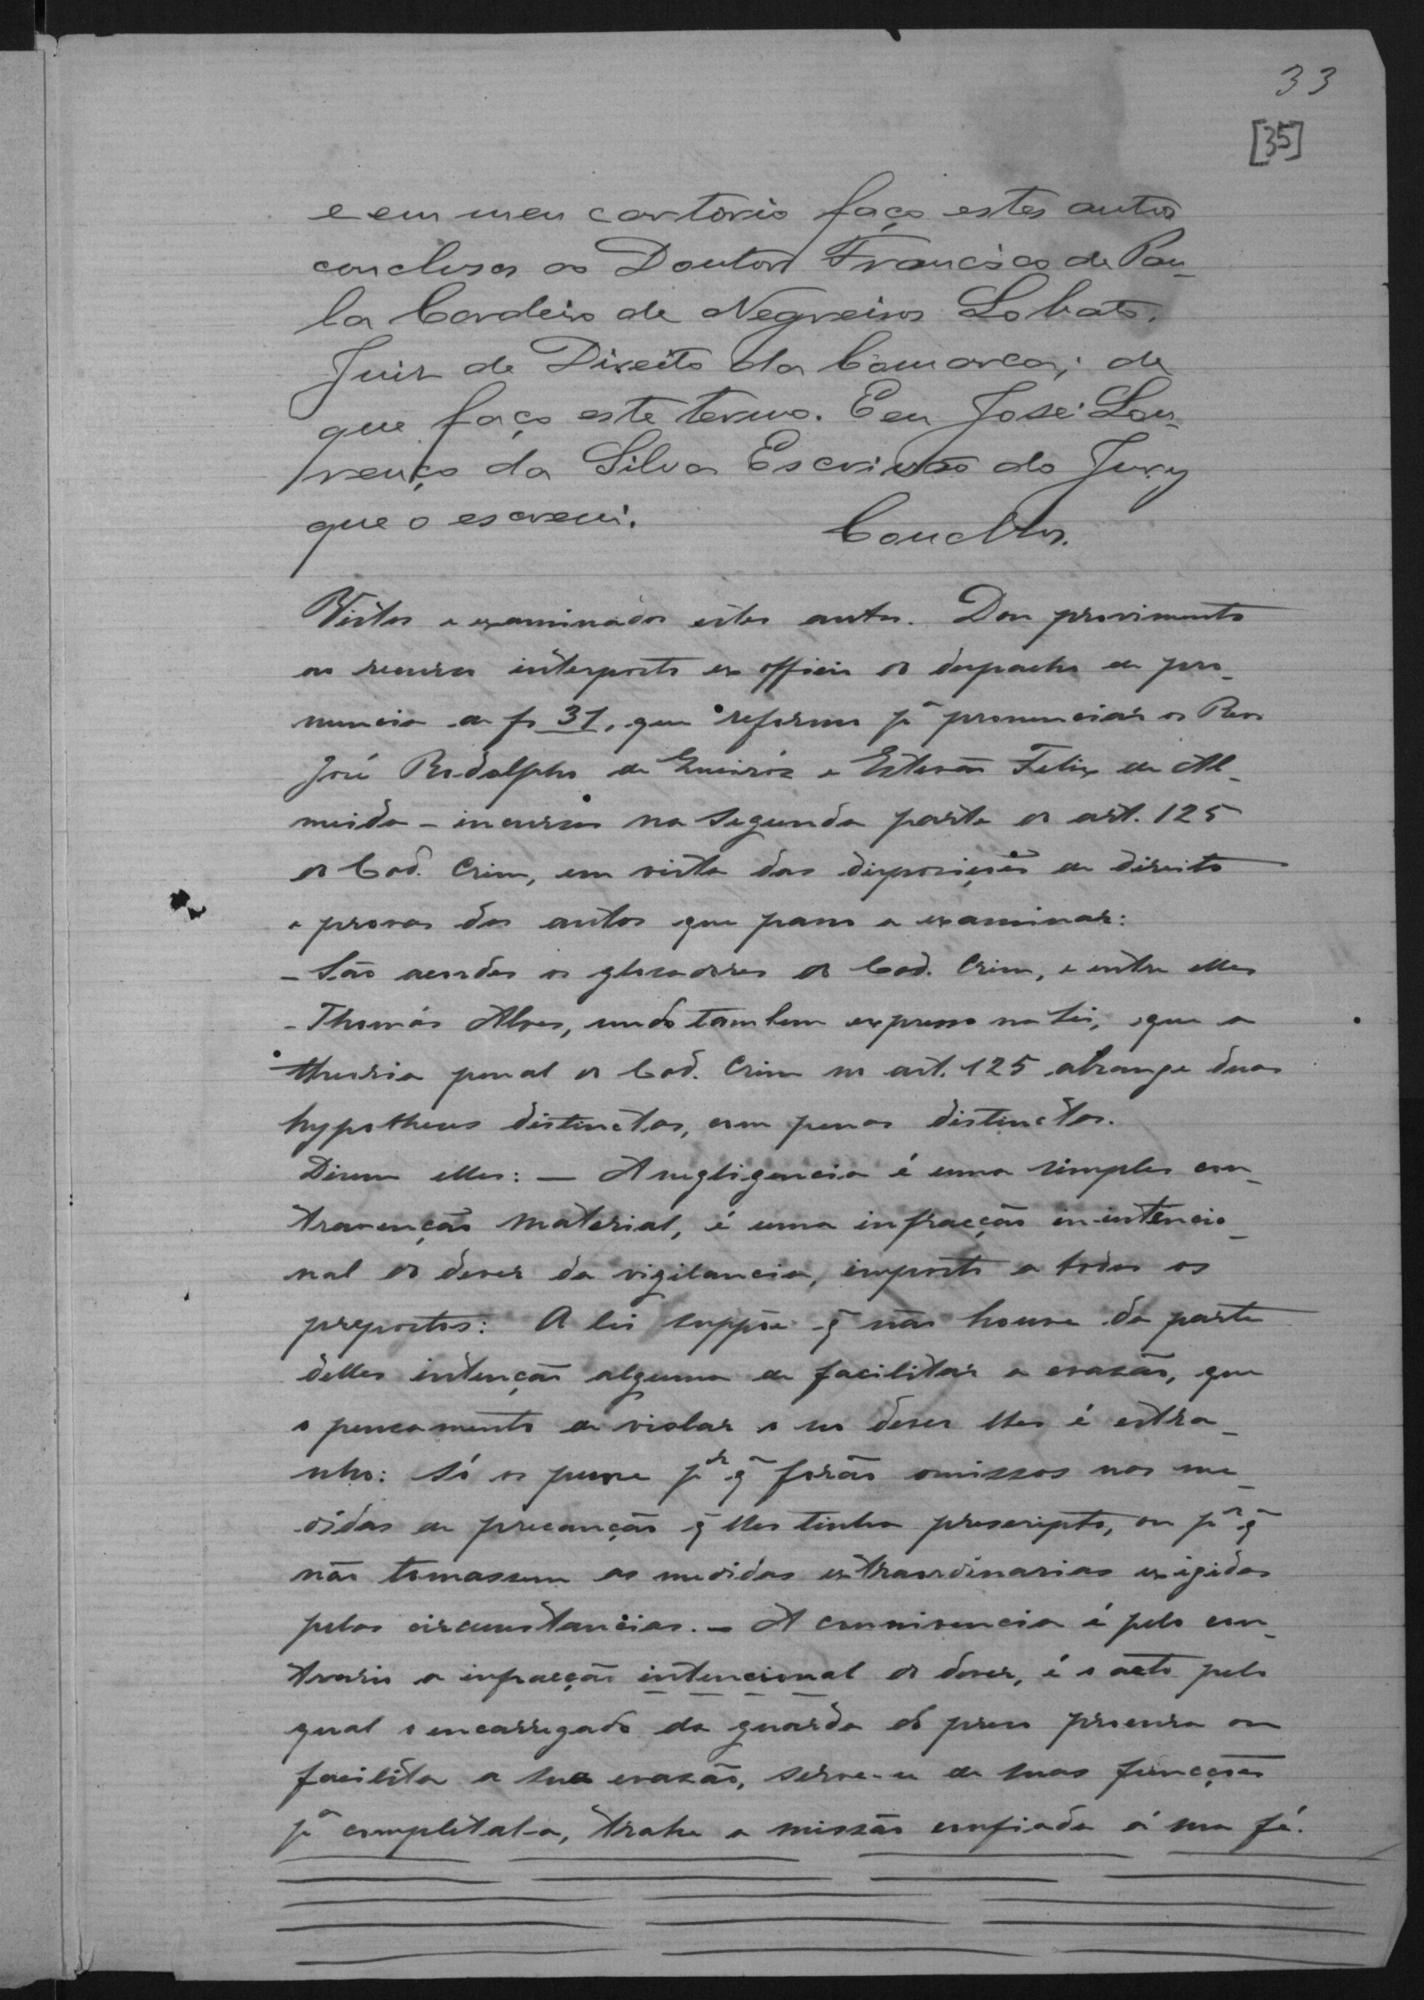 33
[35]
e em meu cartorio faço estes autos
conclusos ao Doutor Francisco de Pau-
la Cordeiro de Negreiros Lobato,
Juiz de Direito da Comarca; de
que faço este termo. E eu José Lou-
renço da Silva Escrivão do Jury
que o escrevi.
Conclos.
Vistos e examinados estes autos. Dou provimento
ao recurso interposto ex officio do despacho de pro-
nuncia a fs 31, que reformo pª pronunciar os Reos
José Rodolpho de Queiróz e Estevão Felix de Al-
meida - incursos na segunda parte do art. 125
do Cod. Crim, em vista das disposições de direito
e provas dos autos que passo a examinar:
- São acordes os glosadores do Cod. Crim, e entre elles
- Thomás Alves, sendo tambem expresso na lei, que a
theoria penal do Cod. Crim no art. 125 abrange duas
hypotheses distinctas, com penas distinctas.
Dizem elles: — A negligencia é uma simples con-
travenção material, é uma infracção inintencio-
nal do dever da vigilancia, imposto a todos os
prepostos: A lei suppõe q̃ não houve da parte
delles intenção alguma de facilitar a evasão, que
o pensamento de violar o seo dever lhes é estra-
nho: só os pune pr q̃ forão omissos nas me-
didas de precaução q̃ lhes tinha prescripto, ou pr q̃
não tomassem as medidas extraordinarias exigidas
pelas circumstancias. - A connivencia é pelo con-
trario a infracção intencional do dever, é o acto pelo
qual o encarregado da guarda do preso procura ou
facilita a sua evasão, serve-se de suas funcções
pª completal-a, trahe a missão confiada á sua fé.